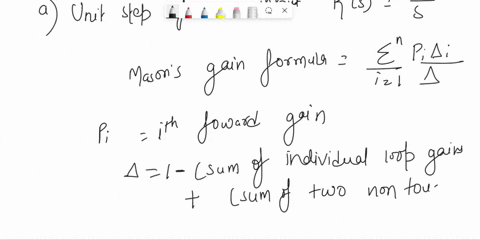 a) Unit step R(s) = 1/s
Mason's gain formula = Σ^n_{i=1} P_i Δ_i / Δ
P_i = i^th foward gain
Δ = 1 - (sum of individual loop gains
+ (sum of two non tou-